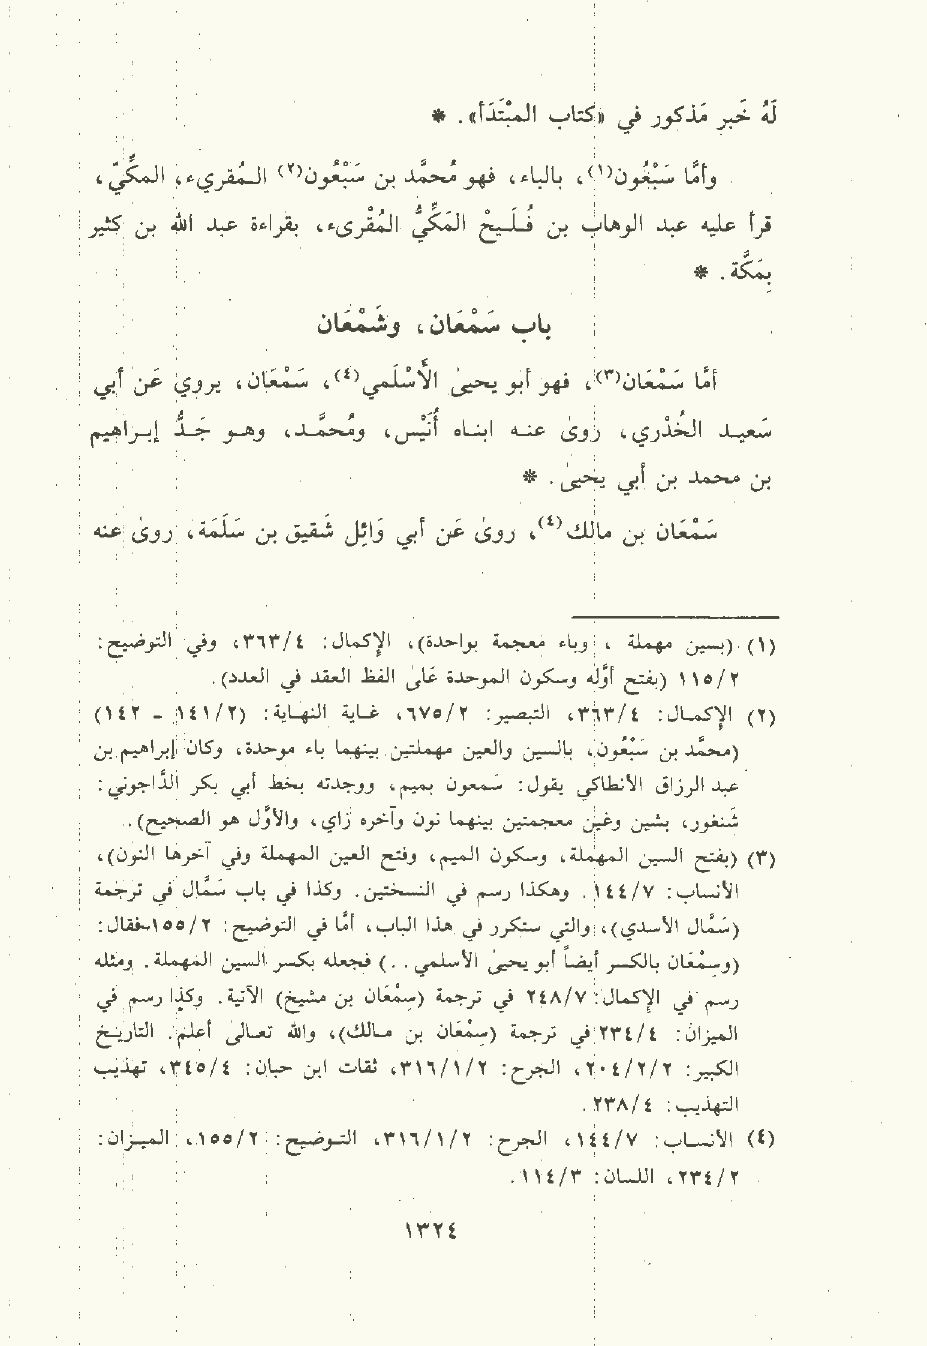 لَهُ خَبر مَذكور في «كتاب المبْتَدَأ». *
وأمَّا سَبْعُون(١)، بالباء، فهو مُحمَّد بن سَبْعُون(٢) المُقريء، المكِّيّ،
قرأ عليه عبد الوهاب بن فُلَيْح المَكِّيُّ المُقْرىء، بقراءة عبد الله بن كثير
بِمَكَّة. *
باب سَمْعَان، وشَمْعَان
أمَّا سَمْعَان(٣)، فهو أبو يحيىٰ الأَسْلَمي(٤)، سَمْعَان، يروي عَن أبي
سَعيد الخُدْري، روىٰ عنه ابناه أُنَيْس، ومُحمَّد، وهو جَدُّ إبراهيم
بن محمد بن أبي يحيىٰ. *
سَمْعَان بن مالك(٤)، روىٰ عَن أبي وَائِل شَقيق بن سَلَمَة، روىٰ عنه
(١) (بسين مهملة، وباء معجمة بواحدة)، الإكمال: ٣٦٣/٤، وفي التوضيح:
١١٥/٢ (بفتح أوَّله وسكون الموحدة علىٰ الفظ العقد في العدد).
(٢) الإكمال: ٣٦٣/٤، التبصير: ٦٧٥/٢، غاية النهاية: (١٤١/٢ - ١٤٢)
(محمَّد بن سَبْعُون، بالسين والعين مهملتين بينهما باء موحدة، وكان إبراهيم بن
عبد الرزاق الأنطاكي يقول: سَمعون بميم، ووجدته بخط أبي بكر الدَّاجوني:
شَنغور، بشين وغين معجمتين بينهما نون وآخره زاي، والأوَّل هو الصحيح).
(٣) (بفتح السين المهملة، وسكون الميم، وفتح العين المهملة وفي آخرها النون)،
الأنساب: ١٤٤/٧. وهكذا رسم في النسختين. وكذا في باب سَمَّال في ترجمة
(سَمَّال الأسدي)، والتي ستكرر في هذا الباب، أمَّا في التوضيح: ١٥٥/٢-فقال:
(وسِمْعان بالكسر أيضاً أبو يحيىٰ الأسلمي. .) فجعله بكسر السين المهملة. ومثله
رسم في الإكمال: ٢٤٨/٧ في ترجمة (سِمْعَان بن مشيخ) الآتية. وكذا رسم في
الميزان: ٢٣٤/٤ في ترجمة (سِمْعَان بن مالك)، والله تعالىٰ أعلم. التاريخ
الكبير: ٢٠٤/٢/٢، الجرح: ٣١٦/١/٢، ثقات ابن حبان: ٣٤٥/٤، تهذيب
التهذيب: ٢٣٨/٤.
(٤) الأنساب: ١٤٤/٧، الجرح: ٣١٦/١/٢، التوضيح: ١٥٥/٢، الميزان:
٢٣٤/٢، اللسان: ١١٤/٣.
١٣٢٤